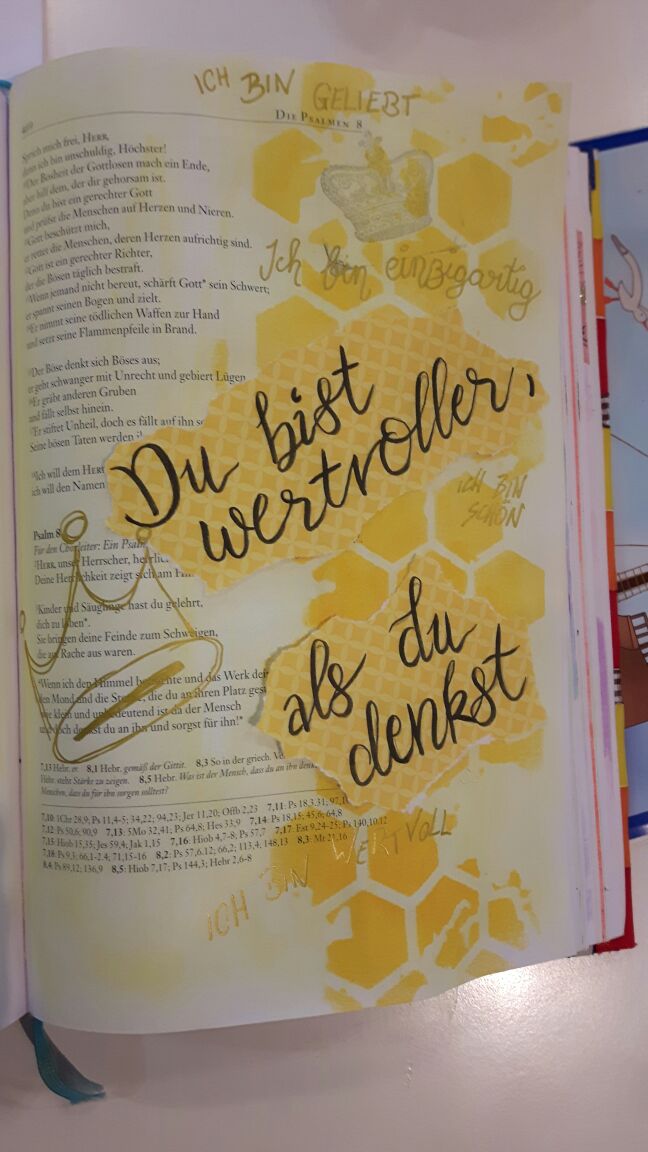 ICH BIN GELIEBT
DIE PSALMEN 8
mich frei, HERR,
ich bin unschuldig, Höchster!
Der Bosheit der Gottlosen mach ein Ende,
hilf dem, der dir gehorsam ist.
du bist ein gerechter Gott
und prüfst die Menschen auf Herzen und Nieren.
Gott beschützt mich,
er rettet die Menschen, deren Herzen aufrichtig sind.
Gott ist ein gerechter Richter,
der die Bösen täglich bestraft.
Wenn jemand nicht bereut, schärft Gott* sein Schwert;
er spannt seinen Bogen und zielt.
Er nimmt seine tödlichen Waffen zur Hand
und setzt seine Flammenpfeile in Brand.
Ich bin einzigartig
Der Böse denkt sich Böses aus;
er geht schwanger mit Unrecht und gebiert Lügen
Er gräbt anderen Gruben
und fällt selbst hinein.
Er stiftet Unheil, doch es fällt auf ihn
Seine bösen Taten werden
Ich will dem HERR
ich will den Namen
Du bist
wertvoller,
ICH BIN
SCHÖN
Psalm 8
Für den Chorleiter: Ein Psalm
HERR, unser Herrscher, herrlic
Deine Herrlichkeit zeigt sich am
Kinder und Säuglinge hast du gelehrt,
dich zu loben*.
Sie bringen deine Feinde zum Schweigen,
die auf Rache aus waren.
Wenn ich den Himmel betrachte und das Werk dei
den Mond und die Sterne, die du an ihren Platz gest
wie klein und unbedeutend ist da der Mensch
und doch denkst du an ihn und sorgst für ihn!*
als du
denkst
7,13 Hebr. er. 8,1 Hebr. gemäß der Gittit. 8,3 So in der griech. Ve
Hebr. steht Stärke zu zeigen. 8,5 Hebr. Was ist der Mensch, dass du an ihn denk
Menschen, dass du für ihn sorgen solltest?
7,10: 1Chr 28,9; Ps 11,4-5; 34,22; 94,23; Jer 11,20; Offb 2,23 7,11: Ps 18,3.31; 97,1
7,12: Ps 50,6; 90,9 7,13: 5Mo 32,41; Ps 64,8; Hes 33,9 7,14: Ps 18,15; 45,6; 64,8
7,15: Hiob 15,35; Jes 59,4; Jak 1,15 7,16: Hiob 4,7-8; Ps 57,7 7,17: Est 9,24-25; Ps 140,10.12
7,18: Ps 9,3; 66,1-2.4; 71,15-16 8,2: Ps 57,6.12; 66,2; 113,4; 148,13 8,3: Mt 21,16
8,4: Ps 89,12; 136,9 8,5: Hiob 7,17; Ps 144,3; Hebr 2,6-8
ICH BIN WERTVOLL